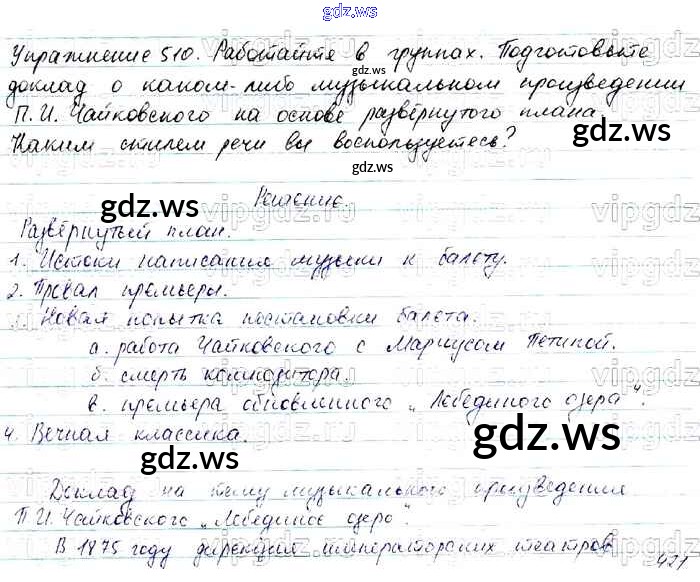 gdz.ws
Упражнение 510. Работайте в группах. Подготовьте
доклад о каком-либо музыкальном произведении
П.И. Чайковского на основе развёрнутого плана.
Каким стилем речи вы воспользуетесь?
Решение.
Развёрнутый план.
1. Истоки написания музыки к балету.
2. Провал премьеры.
3. Новая попытка постановки балета.
а. работа Чайковского с Мариусом Петипой.
б. смерть композитора.
в. премьера обновленного „Лебединого озера".
4. Вечная классика.
Доклад на тему музыкального произведения
П.И. Чайковского „Лебединое озеро".
В 1875 году дирекция императорских театров
421